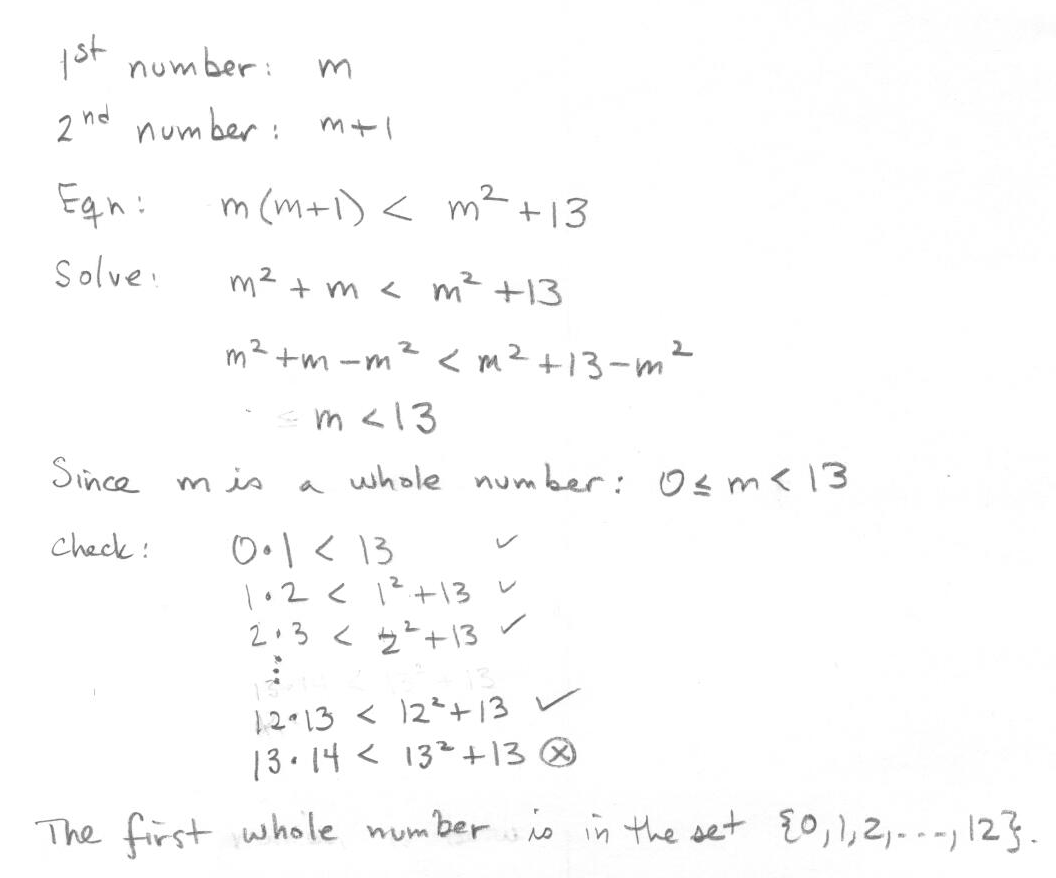 1st number: m
2nd number: m+1
Eqn: m(m+1) < m²+13
Solve: m² + m < m² +13
m²+m-m² < m²+13-m²
m <13
Since m is a whole number: 0≤m<13
Check: 0•1 < 13 ✓
1•2 < 1²+13 ✓
2•3 < 2²+13 ✓
⋮
12•13 < 12²+13 ✓
13•14 < 13²+13 ⊗
The first whole number is in the set {0,1,2,----,12}.